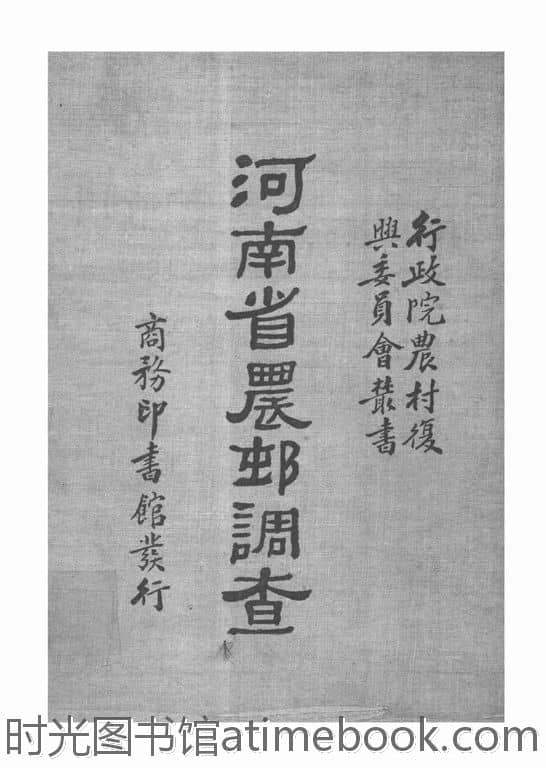 行政院農村復
興委員會叢書
河南省農邨調查
商務印書館發行
时光图书馆atimebook.com